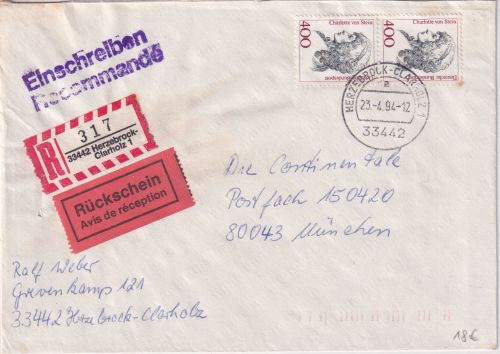 Charlotte von Stein
Charlotte von Stein
400
400
Deutsche Bundespost
Deutsche Bundespost
Einschreiben
Recommandé
HERZEBROCK-CLARHOLZ 1
a
23.-4.94-12
33442
R
317
33442 Herzebrock-
Clarholz 1
Rückschein
Avis de réception
Die Continentale
Postfach 150420
80043 München
Ralf Weber
Grevenkamp 121
33442 Herzebrock-Clarholz
18€